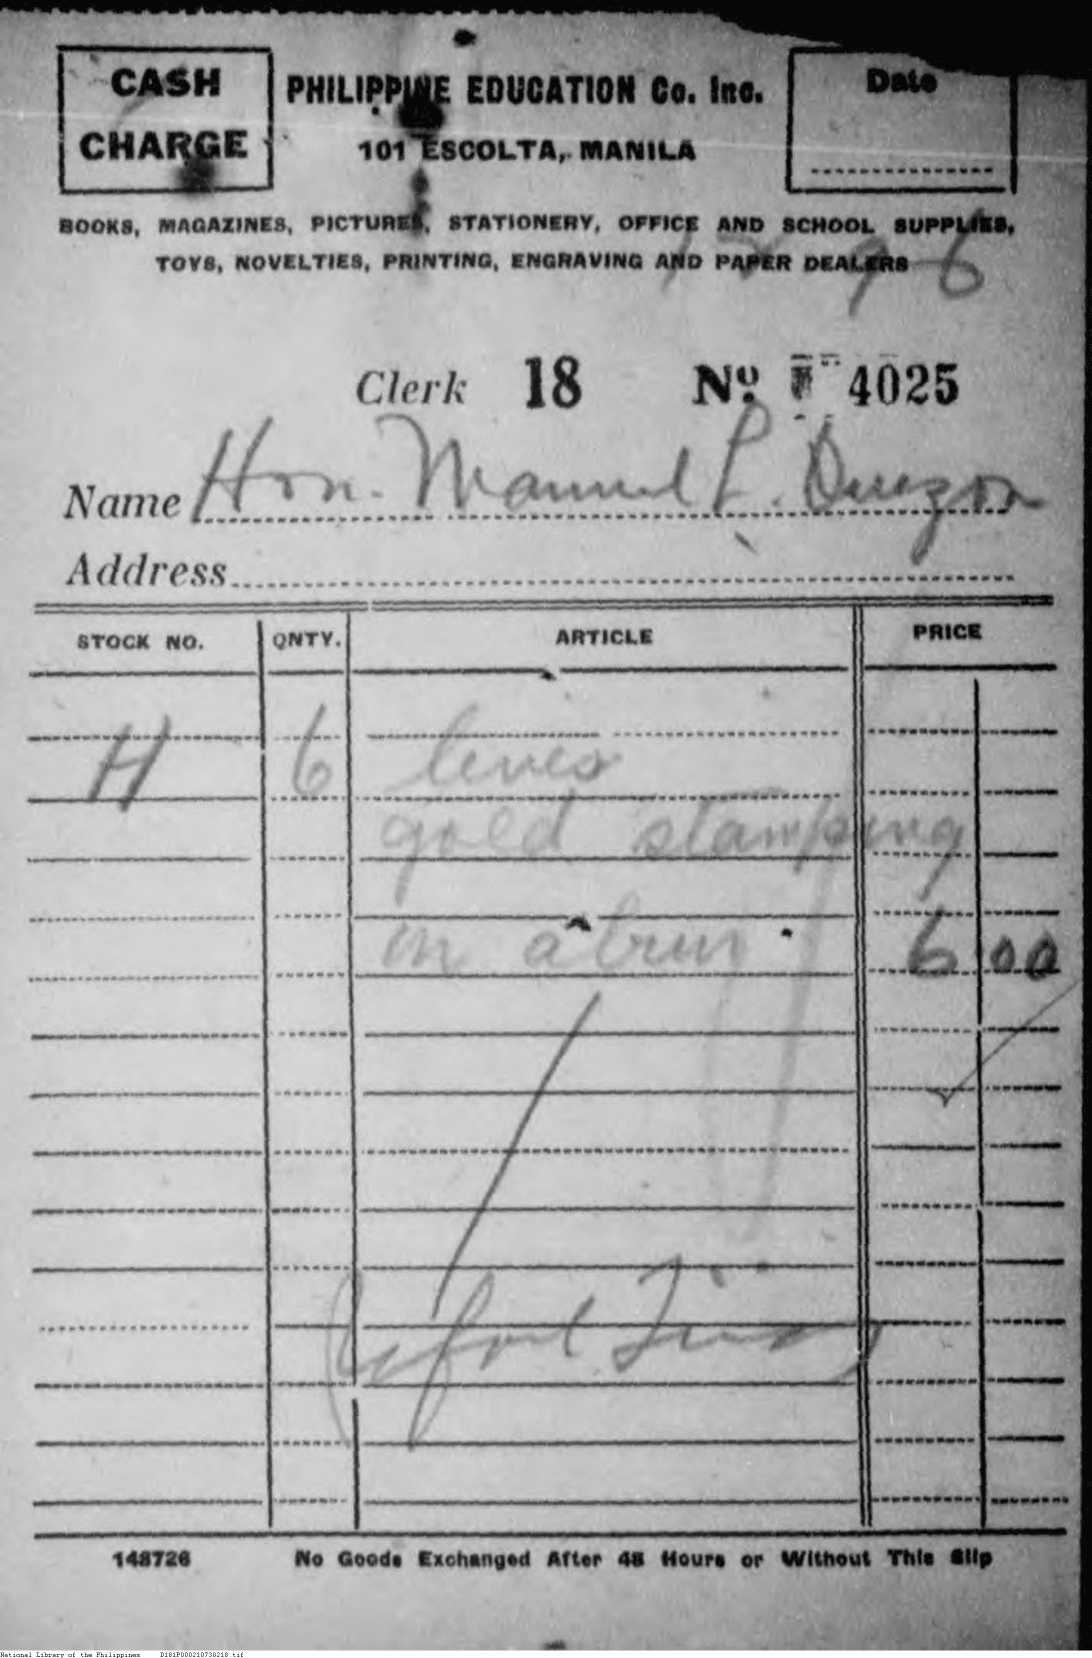 CASH
CHARGE
PHILIPPINE EDUCATION Co. Inc.
101 ESCOLTA, MANILA
Date
BOOKS, MAGAZINES, PICTURES, STATIONERY, OFFICE AND SCHOOL SUPPLIES,
TOYS, NOVELTIES, PRINTING, ENGRAVING AND PAPER DEALERS
Clerk 18 Nº 4025
Name Hon. Manuel L. Quezon
Address
STOCK NO. QNTY. ARTICLE PRICE
H 6 lines
gold stamping
in album 6 00
148726 No Goods Exchanged After 48 Hours or Without This Slip
National Library of the Philippines D181P000210738218.tif